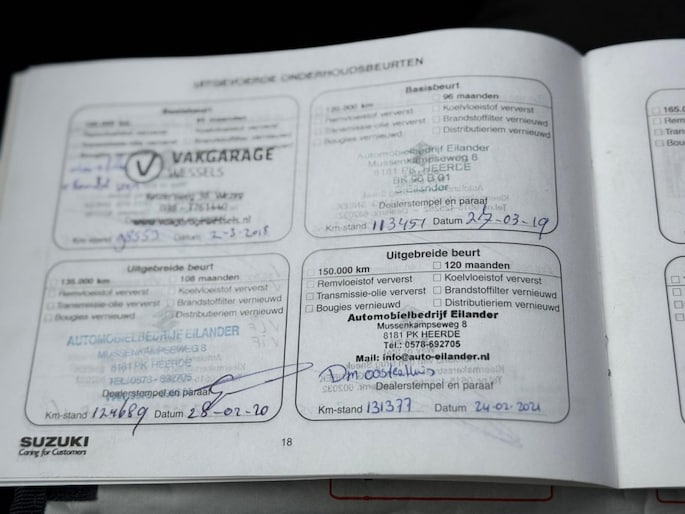 UITGEVOERDE ONDERHOUDSBEURTEN
Basisbeurt
maanden
Koelvloeistof ververst
Brandstoffilter vernieuwd
V VAKGARAGE
WESSELS
Km-stand 98553 Datum 2-3-2018
Basisbeurt
120.000 km 96 maanden
Remvloeistof ververst Koelvloeistof ververst
Transmissie-olie ververst Brandstoffilter vernieuwd
Bougies vernieuwd Distributieriem vernieuwd
Automobielbedrijf Eilander
Mussenkampseweg 8
8181 PK HEERDE
Eilander
Dealerstempel en paraaf
Km-stand 113451 Datum 27-03-19
Uitgebreide beurt
135.000 km 108 maanden
Remvloeistof ververst Koelvloeistof ververst
Transmissie-olie ververst Brandstoffilter vernieuwd
Bougies vernieuwd Distributieriem vernieuwd
AUTOMOBIELBEDRIJF EILANDER
MUSSENKAMPSEWEG 8
8181 PK HEERDE
TEL: 0578 - 692705
Dealerstempel en paraaf
Km-stand 124689 Datum 28-02-20
Uitgebreide beurt
150.000 km 120 maanden
Remvloeistof ververst Koelvloeistof ververst
Transmissie-olie ververst Brandstoffilter vernieuwd
Bougies vernieuwd Distributieriem vernieuwd
Automobielbedrijf Eilander
Mussenkampseweg 8
8181 PK HEERDE
Tel.: 0578-692705
Mail: info@auto-eilander.nl
Dealerstempel en paraaf
Km-stand 131377 Datum 24-02-2021
SUZUKI
Caring for Customers
18
165.0
Rem
Tran
Bou